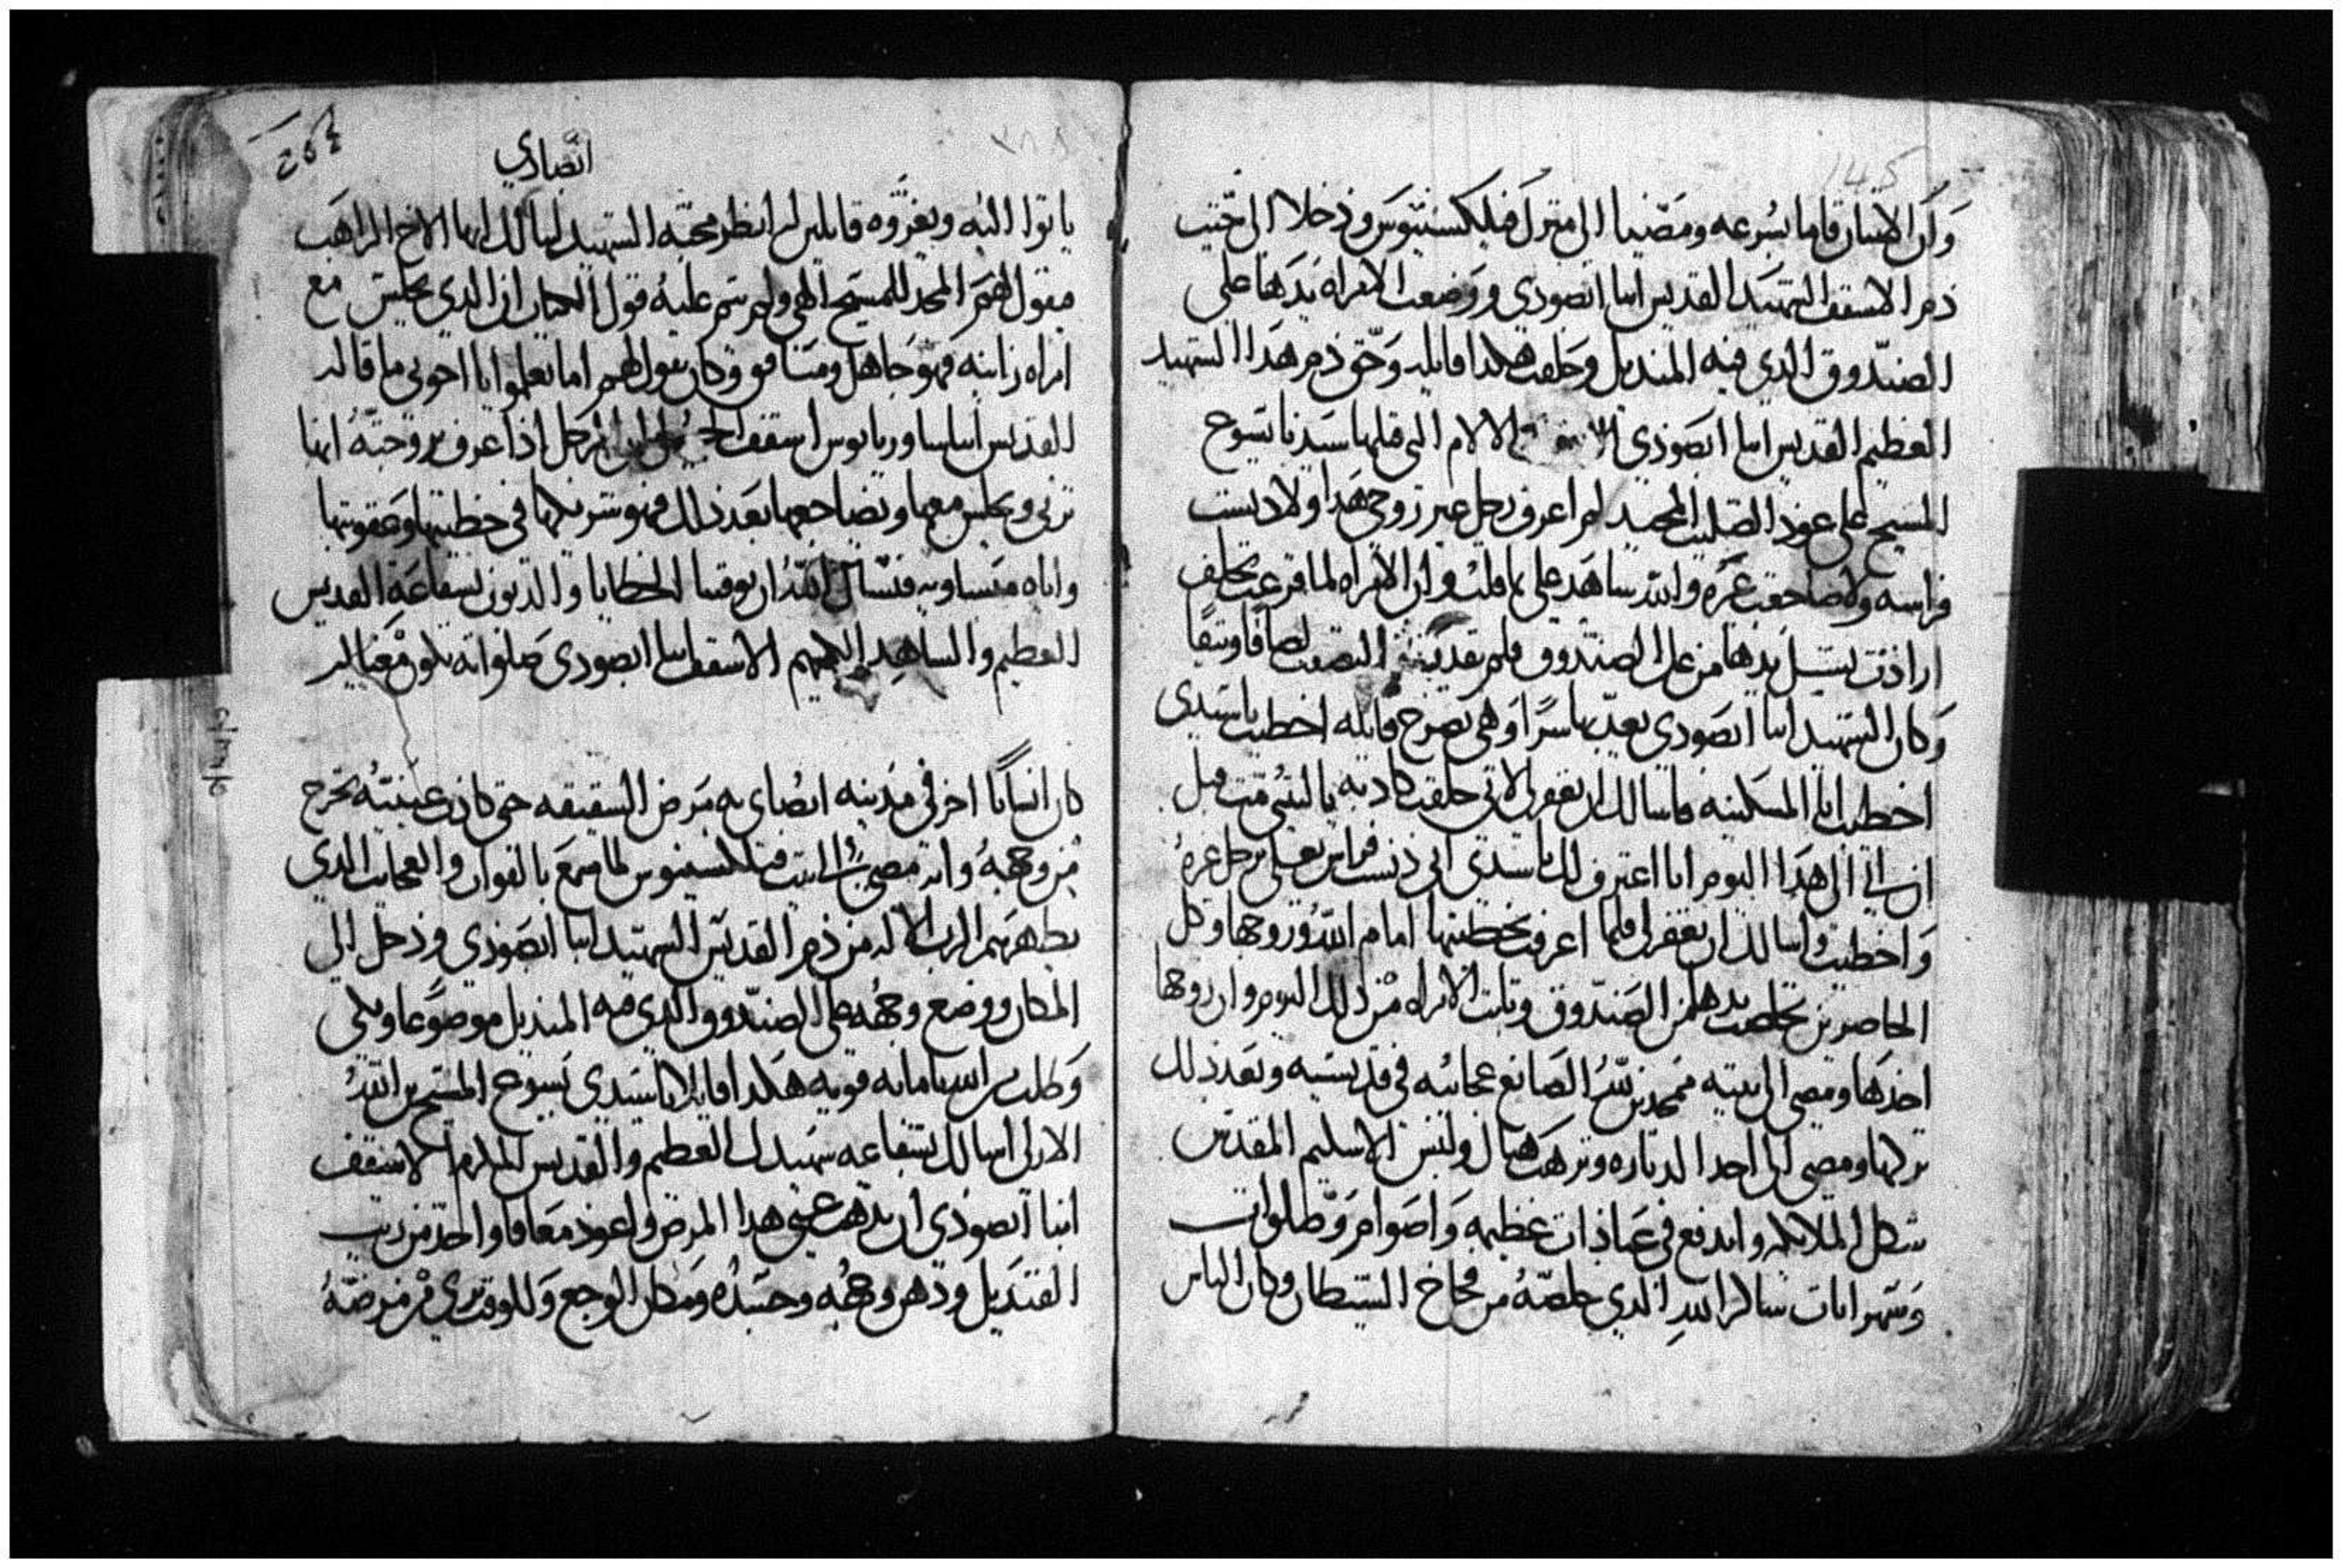 145
وكان الاتنان قاما بسرعه ومضيا الى منزل فيلكسنتيوس ودخلا الى حيت
دم الاسقف الشهيد القديس انبا ابصودي ووضعت الامراه يدها على
الصندوق الدي فيه المنديل وحلفت هكدا قايله وحق دم هدا الشهيد
العظيم القديس انبا ابصودي الالام التي قبلها سيدنا يسوع
المسيح على عود الصليب المجيد لم اعرف رجل غير زوجي هدا ولا دنست
فراشه ولا ضاجعت غيره والله شاهد علي بما قلت وان الامراه لما فرغت تحلف
ارادت تشيل يدها من على الصندوق فلم تقدر التصقت لصاقا وتيقا
وكان الشهيد انبا ابصودي يعدبها سرا وهي تصرخ قايله اخطيت يا سيدي
اخطيت انا المسكينه فاسالك ان تغفر لي لاني حلفت كادبه يا ليتني مت قبل
ان اتي الى هدا اليوم انا اعترف لك يا سيدي اني دنست فراش بعلي برجل غيره
واخطيت واسالك ان تغفر لي فلما اعرفت بخطيتها امام الله وزوجها وكل
الحاضرين تخلصت يدها من الصندوق وتابت الامراه من دلك اليوم وان زوجها
اخدها ومضى الى بيته ممجدين الله الصانع عجائبه في قديسيه وبعد دلك
تركها ومضى الى احد الدياره وترهب هناك ولبس الاسكيم المقدس
شكل الملايكه واندفع في عبادات عظيمه واصوام وصلوات
وسهرانات شاكرا لله الدي خلصه من فخاخ الشيطان وكان الناس
ابصادي
ياتوا اليه ويعزوه قايلين لم انظر محبة الشهيد لنا لك ايها الاخ الراهب
فيقول لهم المجد للمسيح الهي ولم يتم عليه قول الحكيم ان الدي يجلس مع
امراه زانيه فهو جاهل ومنافق وكان يقول لهم اما تعلموا يا اخوتي ما قاله
القديس انبا ساوريانوس اسقف الرجل ادا عرف بزوجته انها
تزني ويجلس معها ويضاجعها بعد دلك فهو شريكها في خطيتها وعقوبتها
واياه متساويه فنسال الله ان يوقينا الخطايا والديون بشفاعة القديس
العظيم والشاهد الكريم الاسقف انبا ابصودي صلواته تكون معنا امين
كان انسانا اخر في مدينه ابصاي به مرض الشقيقه حتى كادت عينيه تخرج
من وجهه وانه مضى الى بيت فيلكسنتيوس لما سمع بالقوات والعجايب الدي
يظهرهم الرب الاله من دم القديس الشهيد انبا ابصودي ودخل الى
المكان ووضع وجهه على الصندوق الدي فيه المنديل موضوعا وبكى
وطلب من الله بامانه قويه هكدا قايلا يا سيدي يسوع المسيح بن الله
الازلي اسالك بشفاعه شهيدك العظيم والقديس المكرم الاسقف
انبا ابصودي ان يدهب عني هدا المرض واعود معافا واخد من زيت
القنديل ودهن وجهه وجسده ومكان الوجع وللوقت برئ من مرضه